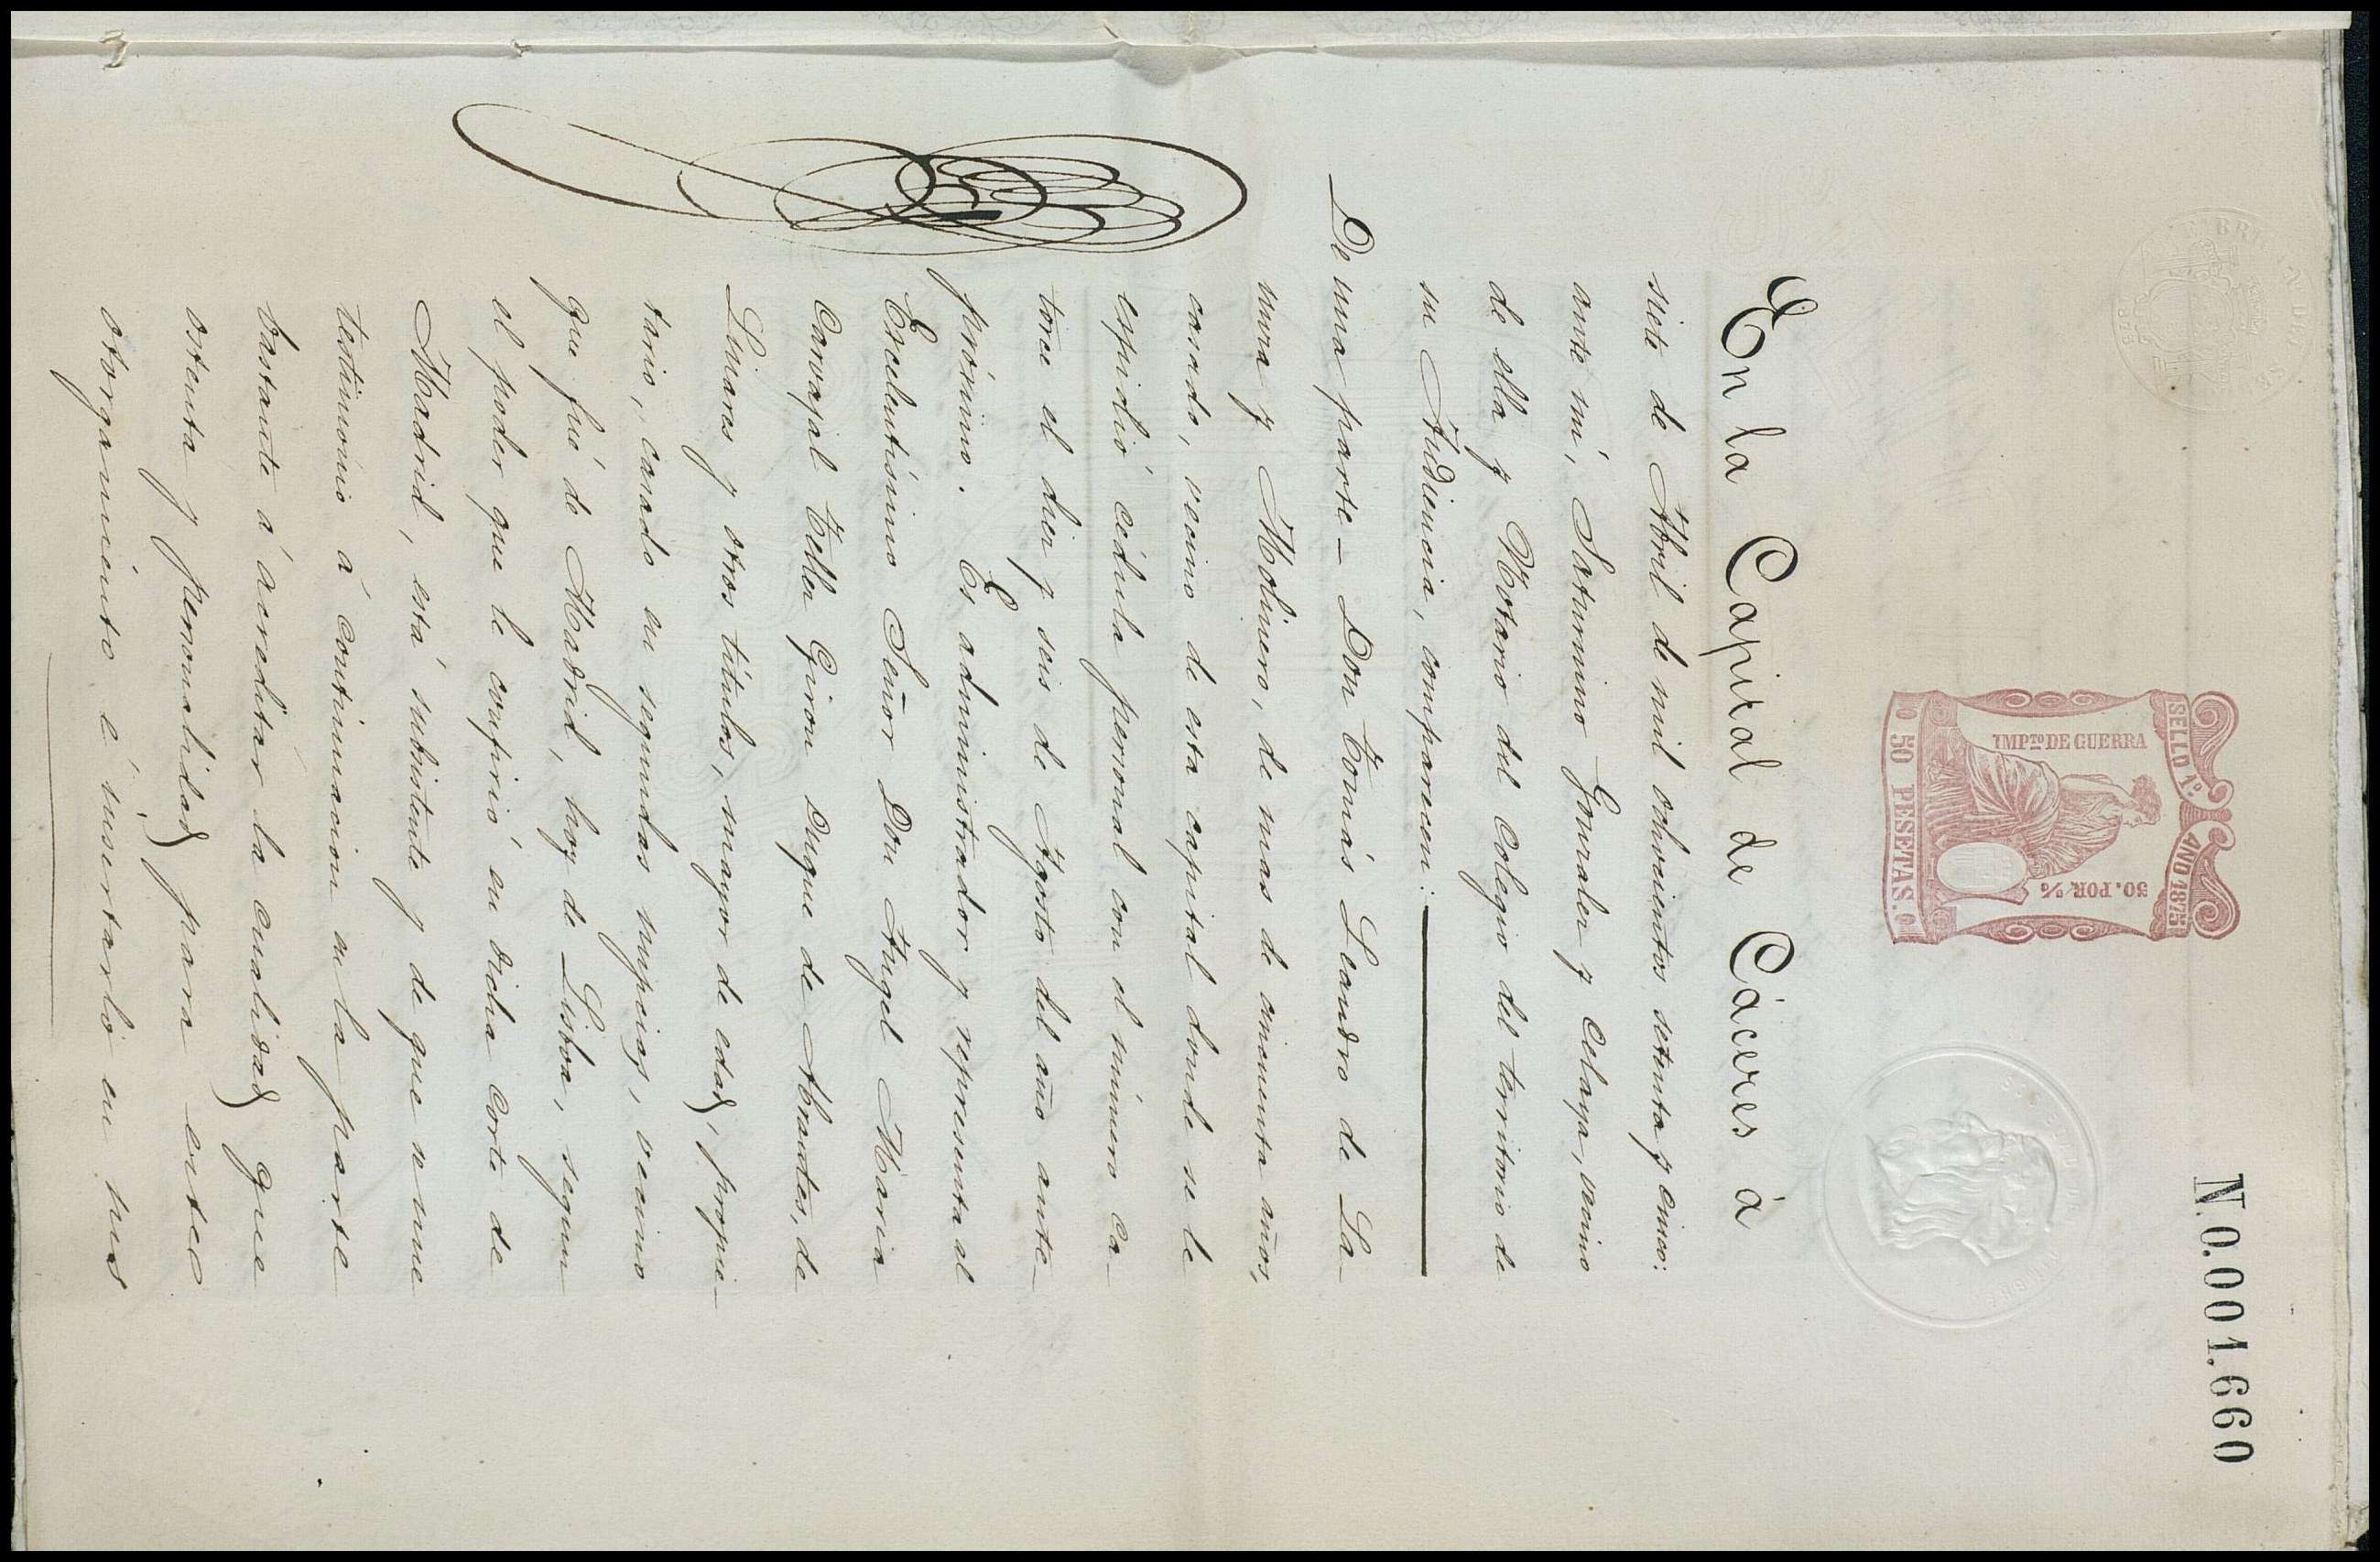 N.0.001.660
SELLO 1º AÑO 1875
IMPTO DE GUERRA
50. POR %
50 PESETAS.
En la Capital de Cáceres á
siete de Abril de mil ochocientos setenta y cinco:
ante mí, Saturnino Gonzalez y Celaya, vecino
de ella y Notario del Colegio del territorio de
su Audiencia, comparecen:
De una parte – Don Tomás Leandro de La-
mura y Molinero, de mas de cincuenta años,
casado, vecino de esta capital donde se le
espidió cédula personal con el número ca-
torce el diez y seis de Agosto del año ante-
próximo. Es administrador y representa al
Escelentísimo Señor Don Angel Maria
Carvajal Tellez Giron Duque de Abrantes, de
Linares y otros títulos, mayor de edad, propie-
tario, casado en segundas nupcias, vecino
que fué de Madrid, hoy de Lisboa, segun
el poder que le confirió en dicha Corte de
Madrid, está subsistente y de que se une
testimonio á continuacion en la parte
bastante á acreditar la cualidad que
ostenta y personalidad para este
otorgamiento é insertarlo en sus